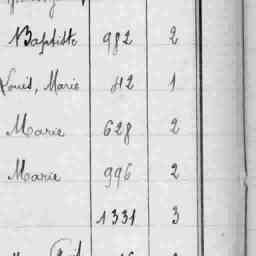 Baptiste 982 2
Louis, Marie 112 1
Marie 628 2
Marie 996 2
1331 3